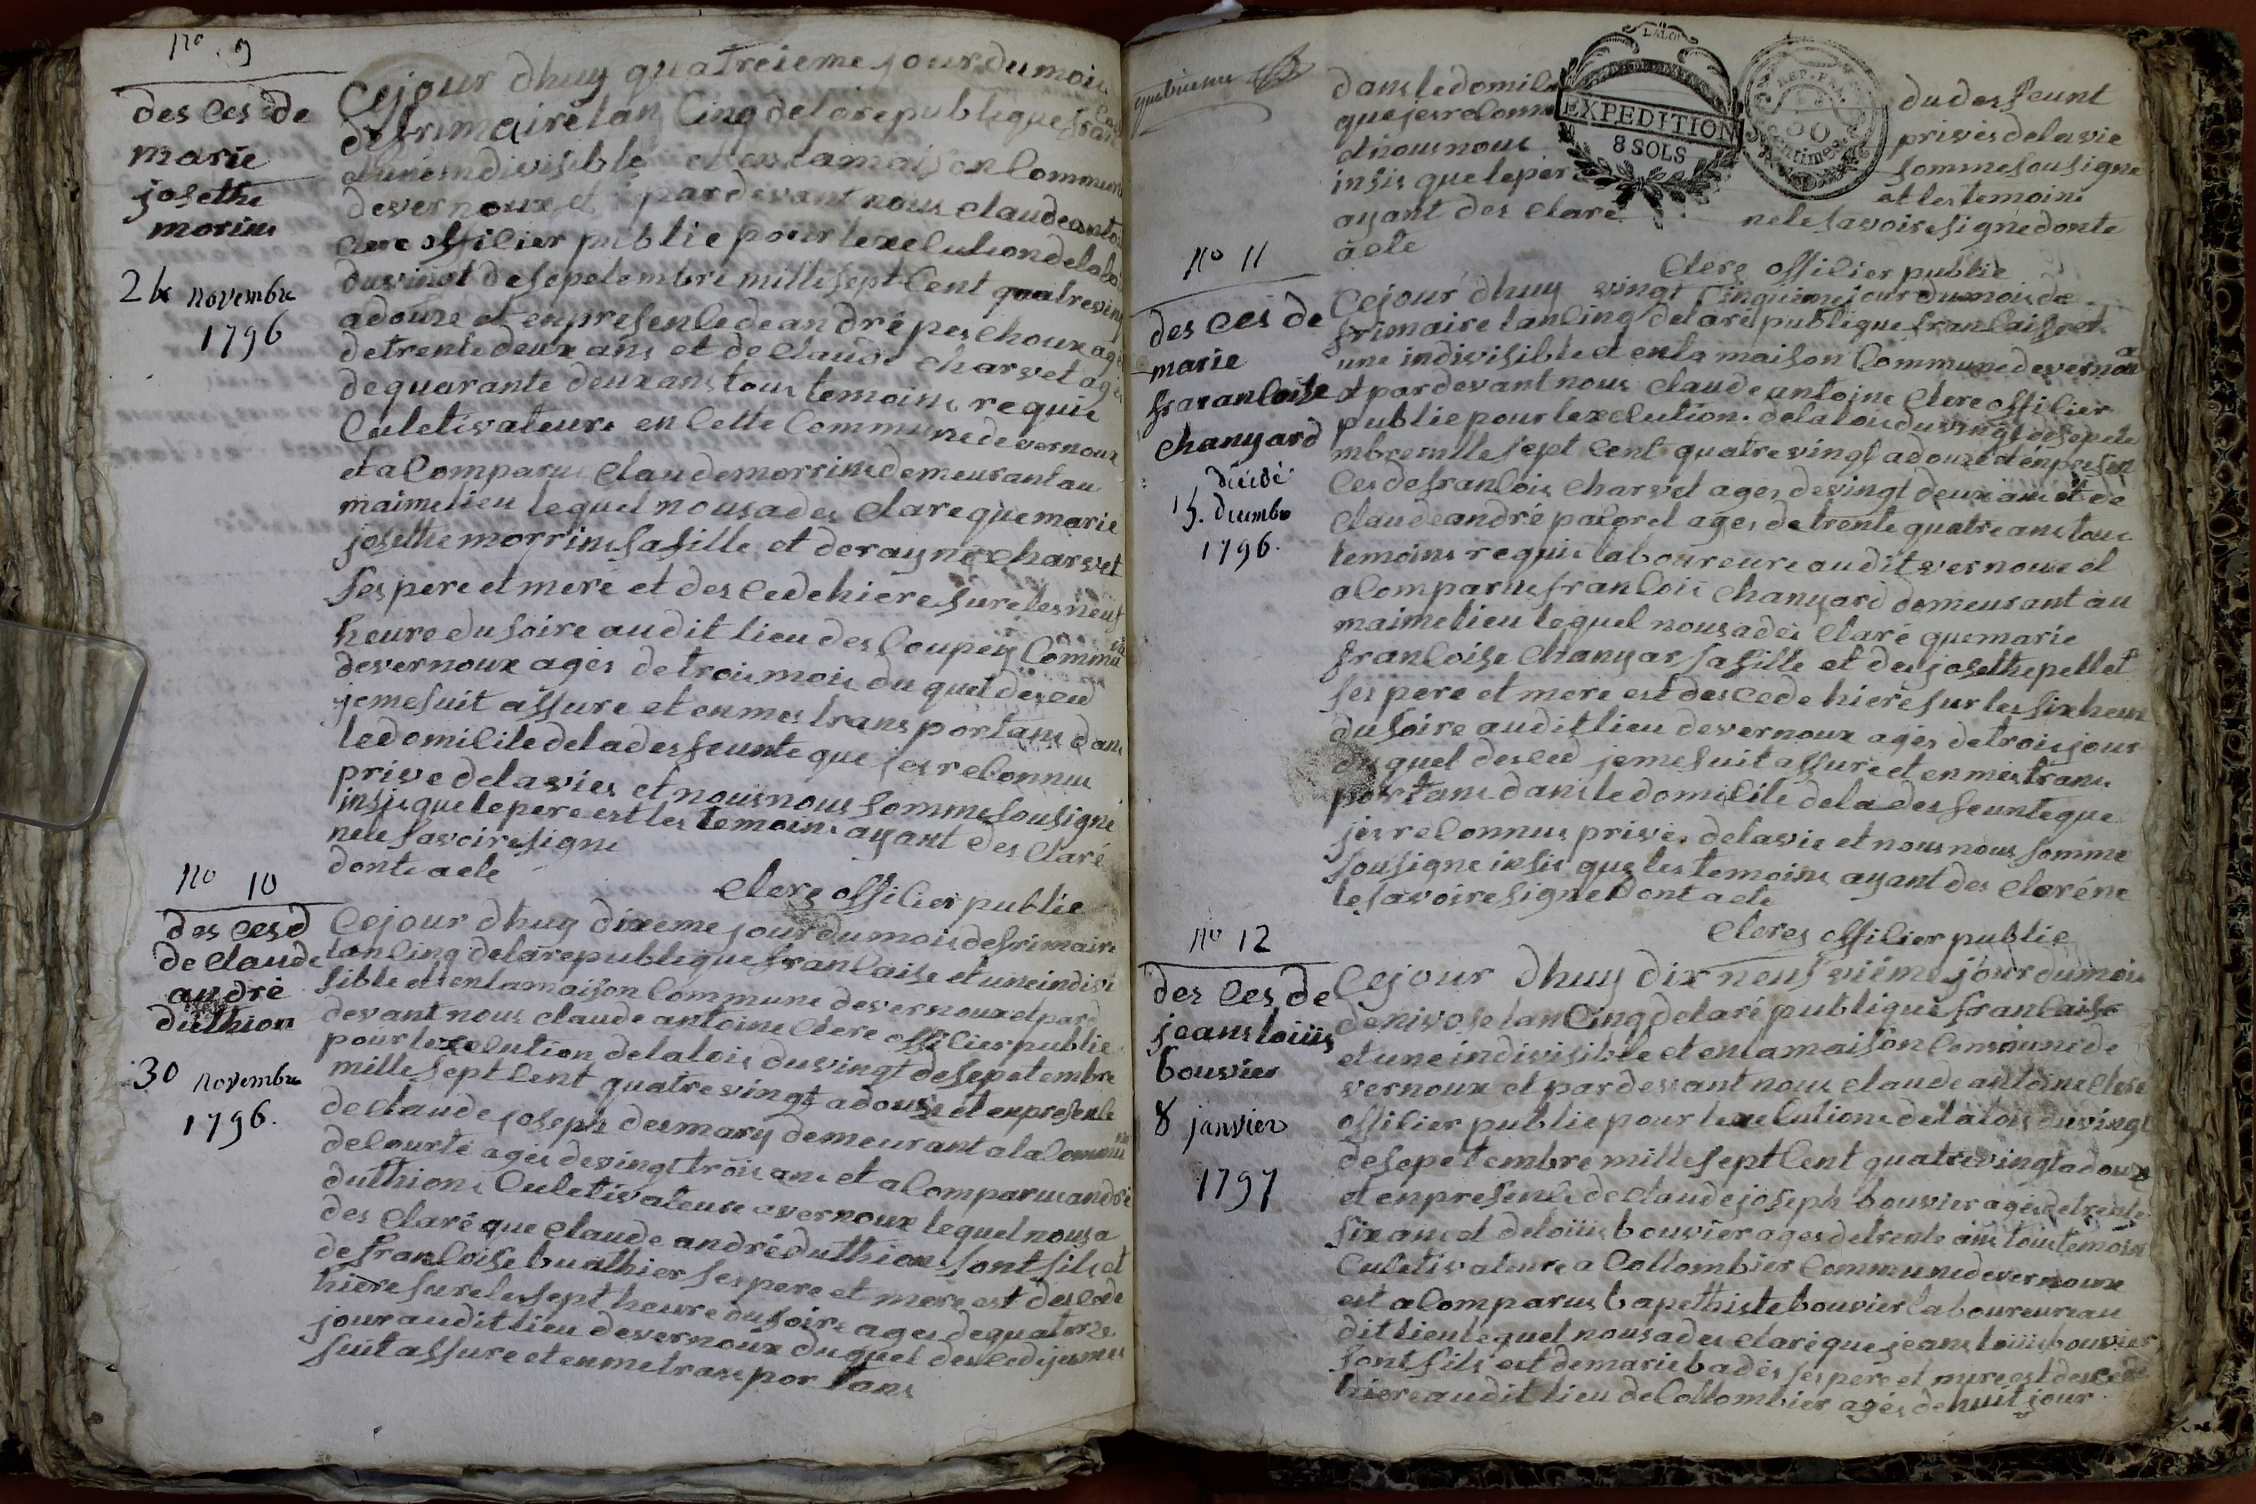 no. 9
des ces de
marie
josethe
morine
24 novembre
1796
Cejour dhuy quatreieme jour du mois
de frimaire lan Cinq delare publique fran
et une indivisible et en lamaison Commune
de vernoux et par devant nous claude antoi
clerc offilier publie pour lexelution de la loi
du vingt de sepetembre mille sept Cent quatre vingt
adouze et en presenle de andré pes choux agé
de trente deux ans et de claude charvet agés
de quarante deux ans tous temoins requis
Culetivateure en Cette Commune de vernoux
et a Comparu Claude morrine demeurant au
maime lieu lequel nous a des clare que marie
josethe morrine sa fille et de rayne charvet
ses pere et mere et des Cede hiere sure les neuf
heure du soire au dit lieu des Coupey Commu
de vernoux agés de trois mois du quel desced
je me suit assure et en mes trans portans dans
le domilile de la des feunte que jes reConnue
prive de la vies et nous nous somme sousigne
insis que le pere est les temoins ayant des claré
nele savoire signe
dont acte
clerc offilier publie
no 10
des ces d
de claude
andré
duthion
30 novembre
1796.
Cejour dhuy dixeme jour du mois de frimaire
lan Cinq delare publique franCaise et une indivi
sible et en lamaison Commune de vernoux et par d
devant nous claude antoine Clerc offilier publie
pour lexelution de la lois du vingt de sepetembre
mille sept Cent quatre vingt a douze et en presenle
de claude joseph desmary demeurant a la Commu
de Courte agés de vingt trois ans et a Comparu andré
duthion Culetivateure a vernoux lequel nous a
des claré que claude andré duthion sont fils et
de franCoise buathier ses pere et mere est des Cede
hiere sure les sept heure du soire ages de quatorze
jour au dit lieu de vernoux du quel des Ced je me
suit assure et en me trans por tans
dans le domili
que jes reConn
et nous nous
insis que le per
ayant des claré
acte
du des feunt
privés de la vie
somme sousigne
et les temoins
nele savoire signe dont
LA LOI
EXPEDITION
8 SOLS
REP. FRA.
50
Centimes
clerc offilier publie
no 11
des ces de
marie
franCoise
chanyard
décédé
15. decembre
1796.
Cejour dhuy vingt Cinquieme jour du mois de
frimaire lan Cinq delaré publique franCaise et
une indivisible et en la maison Commune de vernoux
et par devant nous claude antoine Clerc offilier
publie pour lexelution de la lois du vingt de sepete
mbre mille sept Cent quatre vingt a douze et en presen
Ces de franCois charvet ages de vingt deux ans et de
Claude andré paCoret ages de trente quatre ans tous
temoins requis laboureure au dit vernoux et
a Comparu franCois chanyard demeurant au
maime lieu lequel nous a des claré que marie
franCoise chanyar sa fille et de josethe pellet
ses pere et mere est des Cede hiere sur les six heure
du soire au dit lieu de vernoux agés de trois jour
du quel desced je me suit assure et en mes trans
portans dans le domilile de la des feunte que
jes reConnus privés de la vie et nous nous somme
sousigne insis que les temoins ayant des clare ne
le savoire signe Dont acte
Clerc offilier publie
no 12
des ces de
jeans loiiis
bouvier
8 janvier
1797
Cejour dhuy dix neuf vieme jour du mois
de nivose lan Cinq delaré publique franCaise
et une indivisible et en la maison Commune de
vernoux et par devant nous claude antoine clerc
offilier publie pour lexelutione de la lois du vingt
de sepetembre mille sept Cent quatre vingt a douze
et en presenle de Claude joseph bouvier agés de trente
six ans et de loiiis bouvier ages de trente ans tous temoins
Culetivateure a Collombier Commune de vernoux
est a Comparus bapethiste bouvier laboureure au
dit lieu lequel nous a des claré que jeans loiiis bouvier
sont fils est de marie badés ses pere et mere est desCede
hiere au dit lieu de Collombier agés de huit jour